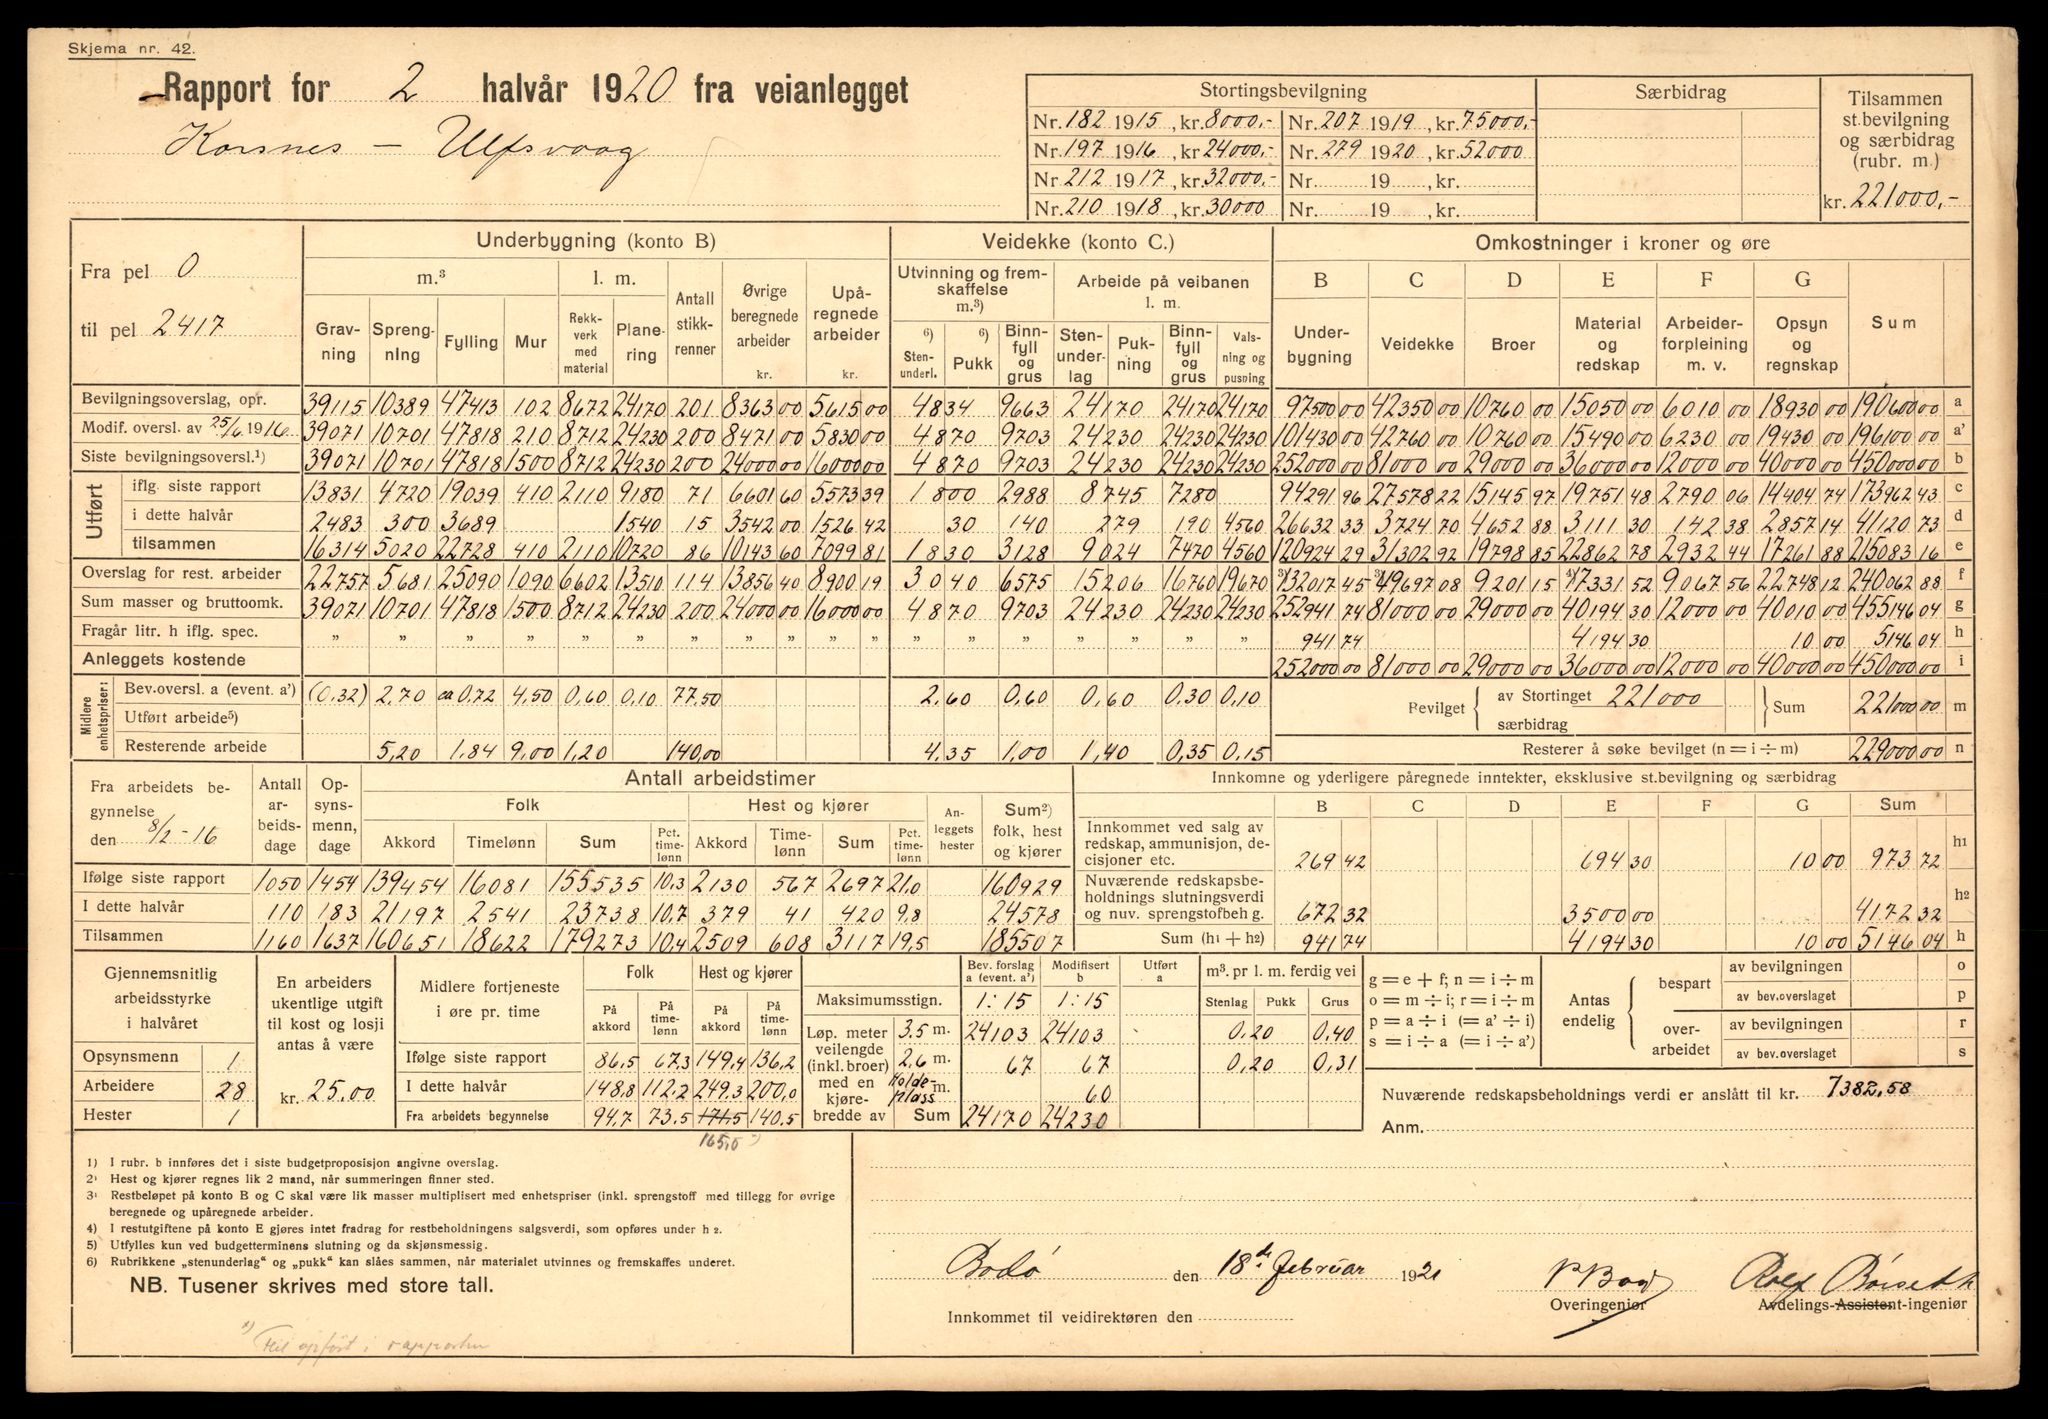 Skjema nr. 42.
Rapport for 2 halvår 1920 fra veianlegget
Korsnes – Ulfsvaag
Stortingsbevilgning | Særbidrag | Tilsammen st.bevilgning og særbidrag (rubr. m.)
Nr. 182 1915, kr. 8000,- | Nr. 207 1919, kr. 75000,-
Nr. 197 1916, kr 24000,- | Nr. 279 1920, kr. 52000
Nr. 212 1917, kr. 32000,- | Nr. 19 , kr.
Nr. 210 1918, kr. 30000 | Nr. 19 , kr. | kr. 221000,-
Fra pel 0
til pel 2417
Underbygning (konto B) | Veidekke (konto C.) | Omkostninger i kroner og øre
m.3 | l. m. | Antall stikkrenner | Øvrige beregnede arbeider kr. | Upåregnede arbeider kr. | Utvinning og fremskaffelse m.3) | Arbeide på veibanen l. m. | B | C | D | E | F | G
Gravning | Sprengning | Fylling | Mur | Rekkverk med material | Planering | 6) Stenunderl. | 6) Pukk | Binnfyll og grus | Stenunderlag | Pukning | Binnfyll og grus | Valsning og pusning | Underbygning | Veidekke | Broer | Material og redskap | Arbeiderforpleining m. v. | Opsyn og regnskap | Sum
Bevilgningsoverslag, opr. | 39115 | 10389 | 47413 | 102 | 8672 | 24170 | 201 | 8363 00 | 5615 00 | 4834 | 9663 | 24170 | 24170 | 24170 | 97500 00 | 42350 00 | 10760 00 | 15050 00 | 6010 00 | 18930 00 | 190600 00 | a
Modif. oversl. av 25/6 1916 | 39071 | 10701 | 47818 | 210 | 8712 | 24230 | 200 | 8471 00 | 5830 00 | 4870 | 9703 | 24230 | 24230 | 24230 | 101430 00 | 42760 00 | 10760 00 | 15490 00 | 6230 00 | 19430 00 | 196100 00 | a'
Siste bevilgningsoversl.1) | 39071 | 10701 | 47818 | 1500 | 8712 | 24230 | 200 | 24000 00 | 16000 00 | 4870 | 9703 | 24230 | 24230 | 24230 | 252000 00 | 81000 00 | 29000 00 | 36000 00 | 12000 00 | 40000 00 | 450000 00 | b
Utført
iflg. siste rapport | 13831 | 4720 | 19039 | 410 | 2110 | 9180 | 71 | 6601 60 | 5573 39 | 1800 | 2988 | 8745 | 7280 | 94291 96 | 27578 22 | 15145 97 | 19751 48 | 2790 06 | 14404 74 | 173962 43 | c
i dette halvår | 2483 | 300 | 3689 | 1540 | 15 | 3542 00 | 1526 42 | 30 | 140 | 279 | 190 | 4560 | 26632 33 | 3724 70 | 4652 88 | 3111 30 | 142 38 | 2857 14 | 41120 73 | d
tilsammen | 16314 | 5020 | 22728 | 410 | 2110 | 10720 | 86 | 10143 60 | 7099 81 | 1830 | 3128 | 9024 | 7470 | 4560 | 120924 29 | 31302 92 | 19798 85 | 22862 78 | 2932 44 | 17261 88 | 215083 16 | e
Overslag for rest. arbeider | 22757 | 5681 | 25090 | 1090 | 6602 | 13510 | 114 | 13856 40 | 8900 19 | 3040 | 6575 | 15206 | 16760 | 19670 | 3) 132017 45 | 3) 49697 08 | 9201 15 | 4) 17331 52 | 9067 56 | 22748 12 | 240062 88 | f
Sum masser og bruttoomk. | 39071 | 10701 | 47818 | 1500 | 8712 | 24230 | 200 | 24000 00 | 16000 00 | 4870 | 9703 | 24230 | 24230 | 24230 | 252941 74 | 81000 00 | 29000 00 | 40194 30 | 12000 00 | 40010 00 | 455146 04 | g
Fragår litr. h iflg. spec. | " | " | " | " | " | " | " | " | " | " | " | " | " | " | " | " | " | 941 74 | 4194 30 | 10 00 | 5146 04 | h
Anleggets kostende | 252000 00 | 81000 00 | 29000 00 | 36000 00 | 12000 00 | 40000 00 | 450000 00 | i
Midlere enhetspriser:
Bev.oversl. a (event. a') | (0.32) | 2,70 | ca 0,72 | 4,50 | 0,60 | 0,10 | 77,50 | 2,60 | 0,60 | 0,60 | 0,30 | 0,10 | Bevilget | av Stortinget 221000 | Sum | 221000 00 | m
Utført arbeide5) | særbidrag
Resterende arbeide | 5,20 | 1,84 | 9,00 | 1,20 | 140,00 | 4,35 | 1,00 | 1,40 | 0,35 | 0,15 | Resterer å søke bevilget (n = i ÷ m) | 229000 00 | n
Fra arbeidets begynnelse den 8/2-16 | Antall arbeidsdage | Opsynsmenn, dage | Antall arbeidstimer
Folk | Hest og kjører | Anleggets hester | Sum2) folk, hest og kjører
Akkord | Timelønn | Sum | Pct. timelønn | Akkord | Timelønn | Sum | Pct. timelønn
Ifølge siste rapport | 1050 | 1454 | 139454 | 16081 | 155535 | 10,3 | 2130 | 567 | 2697 | 21,0 | 160929
I dette halvår | 110 | 183 | 21197 | 2541 | 23738 | 10,7 | 379 | 41 | 420 | 9,8 | 24578
Tilsammen | 1160 | 1637 | 160651 | 18622 | 179273 | 10,4 | 2509 | 608 | 3117 | 19,5 | 185507
Innkomne og yderligere påregnede inntekter, eksklusive st.bevilgning og særbidrag
B | C | D | E | F | G | Sum
Innkommet ved salg av redskap, ammunisjon, decisjoner etc. | 269 42 | 694 30 | 10 00 | 973 72 | h1
Nuværende redskapsbeholdnings slutningsverdi og nuv. sprengstofbehg. | 672 32 | 3500 00 | 4172 32 | h2
Sum (h1 + h2) | 941 74 | 4194 30 | 10 00 | 5146 04 | h
Gjennemsnitlig arbeidsstyrke i halvåret
Opsynsmenn 1
Arbeidere 28
Hester 1
En arbeiders ukentlige utgift til kost og losji antas å være
kr. 25,00
Midlere fortjeneste i øre pr. time | Folk | Hest og kjører
På akkord | På timelønn | På akkord | På timelønn
Ifølge siste rapport | 86,5 | 67,3 | 149,4 | 136,2
I dette halvår | 148,8 | 112,2 | 249,3 | 200,0
Fra arbeidets begynnelse | 94,7 | 73,5 | 171,5 | 140,5
165,0 x)
Bev. forslag a (event. a') | Modifisert b | Utført a
Maksimumsstign. | 1:15 | 1:15
Løp. meter veilengde (inkl. broer) med en kjørebredde av
3,5 m. | 24103 | 24103
2,6 m. | 67 | 67
Holdeplass m. | 60
Sum | 24170 | 24230
m3. pr l. m. ferdig vei
Stenlag | Pukk | Grus
0,20 | 0,40
0,20 | 0,31
g = e + f; n = i ÷ m
o = m ÷ i; r = i ÷ m
p = a ÷ i (= a' ÷ i)
s = i ÷ a (= i ÷ a')
Antas endelig
bespart | av bevilgningen | o
av bev.overslaget | p
overarbeidet | av bevilgningen | r
av bev.overslaget | s
Nuværende redskapsbeholdnings verdi er anslått til kr. 7382,58
Anm.
1) I rubr. b innføres det i siste budgetproposisjon angivne overslag.
2) Hest og kjører regnes lik 2 mand, når summeringen finner sted.
3) Restbeløpet på konto B og C skal være lik masser multiplisert med enhetspriser (inkl. sprengstoff med tillegg for øvrige
beregnede og upåregnede arbeider.
4) I restutgiftene på konto E gjøres intet fradrag for restbeholdningens salgsverdi, som opføres under h 2.
5) Utfylles kun ved budgetterminens slutning og da skjønsmessig.
6) Rubrikkene „stenunderlag" og „pukk" kan slåes sammen, når materialet utvinnes og fremskaffes underet.
NB. Tusener skrives med store tall.
x) Feil opført i rapporten
Bodø den 18de februar 1921
Innkommet til veidirektøren den
Overingeniør
Rolf Børseth
Avdelings-Assistent-ingeniør